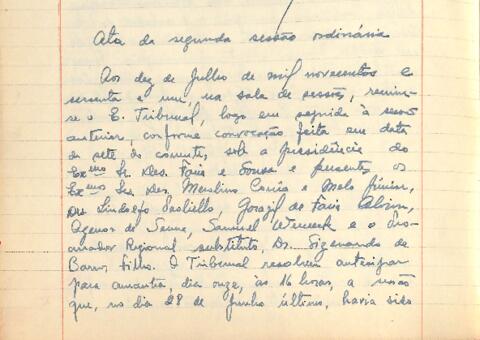 Ata da segunda sessão ordinária
Aos dez de Julho de mil novecentos e
sessenta e um, na sala de sessões, reuniu-
se o E. Tribunal, logo em seguida à sessão
anterior, conforme convocação feita em data
de sete do corrente, sob a presidência do
Exmo Sr. Des. Faria e Sousa e presentes os
Exmo Srs. Des. Merolino Corrêa e Melo Júnior,
Drs Lindolfo Paoliello, Gorazil de Faria Alvim,
Agenor de Senna, Samuel Werneck e o Pro-
curador Regional substituto, Dr. Sizenando de
Barros Filho. O Tribunal resolveu antecipar
para amanhã, dia onze, às 16 horas, a sessão
que, no dia 28 de Junho último, havia sido